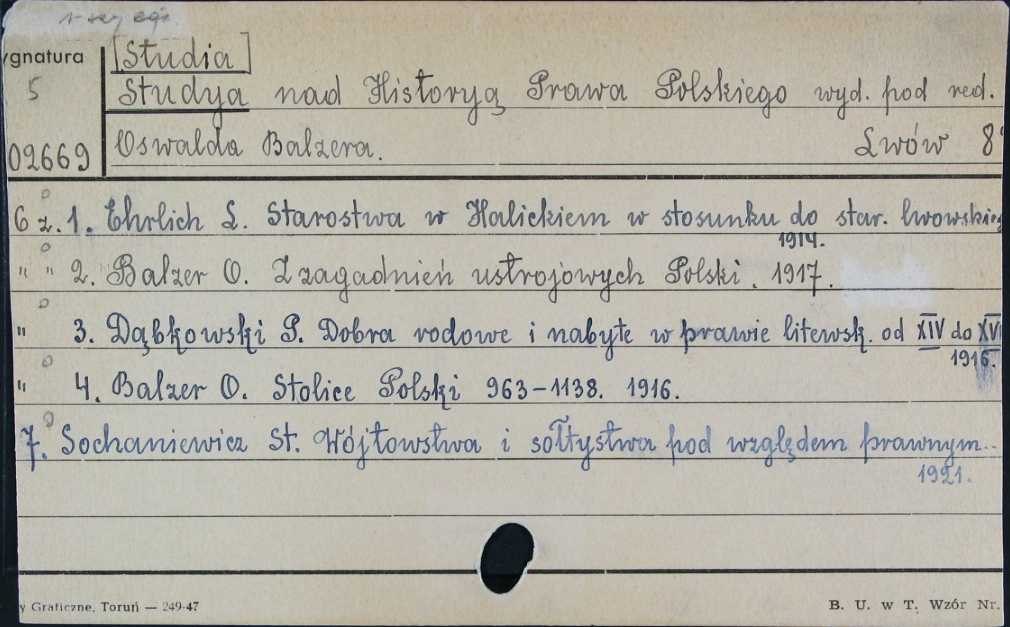 ygnatura
[Studia]
5
Studya nad Historyą Prawa Polskiego wyd. pod red.
02669
Oswalda Balzera. Lwów 8°
6 z. 1. Ehrlich L. Starostwa w Halickiem w stosunku do star. lwowskieg
1914.
" " 2. Balzer O. Z zagadnień ustrojowych Polski. 1917.
" 3. Dąbkowski P. Dobra rodowe i nabyte w prawie litewsk. od XIV do XVI
1916.
" 4. Balzer O. Stolice Polski 963-1138. 1916.
7. Sochaniewicz St. Wójtowstwa i sołtystwa pod względem prawnym...
1921.
y Graficzne, Toruń — 249-47
B. U. w T. Wzór Nr.